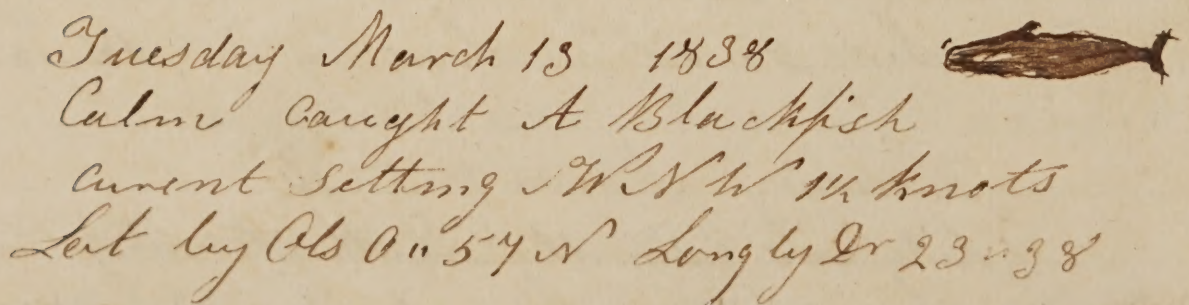 Tuesday March 13 1838
Calm caught A Blackfish
current setting W N W 1½ knots
Lat by Obs 0" 57 N Long by Dr 23 " 38